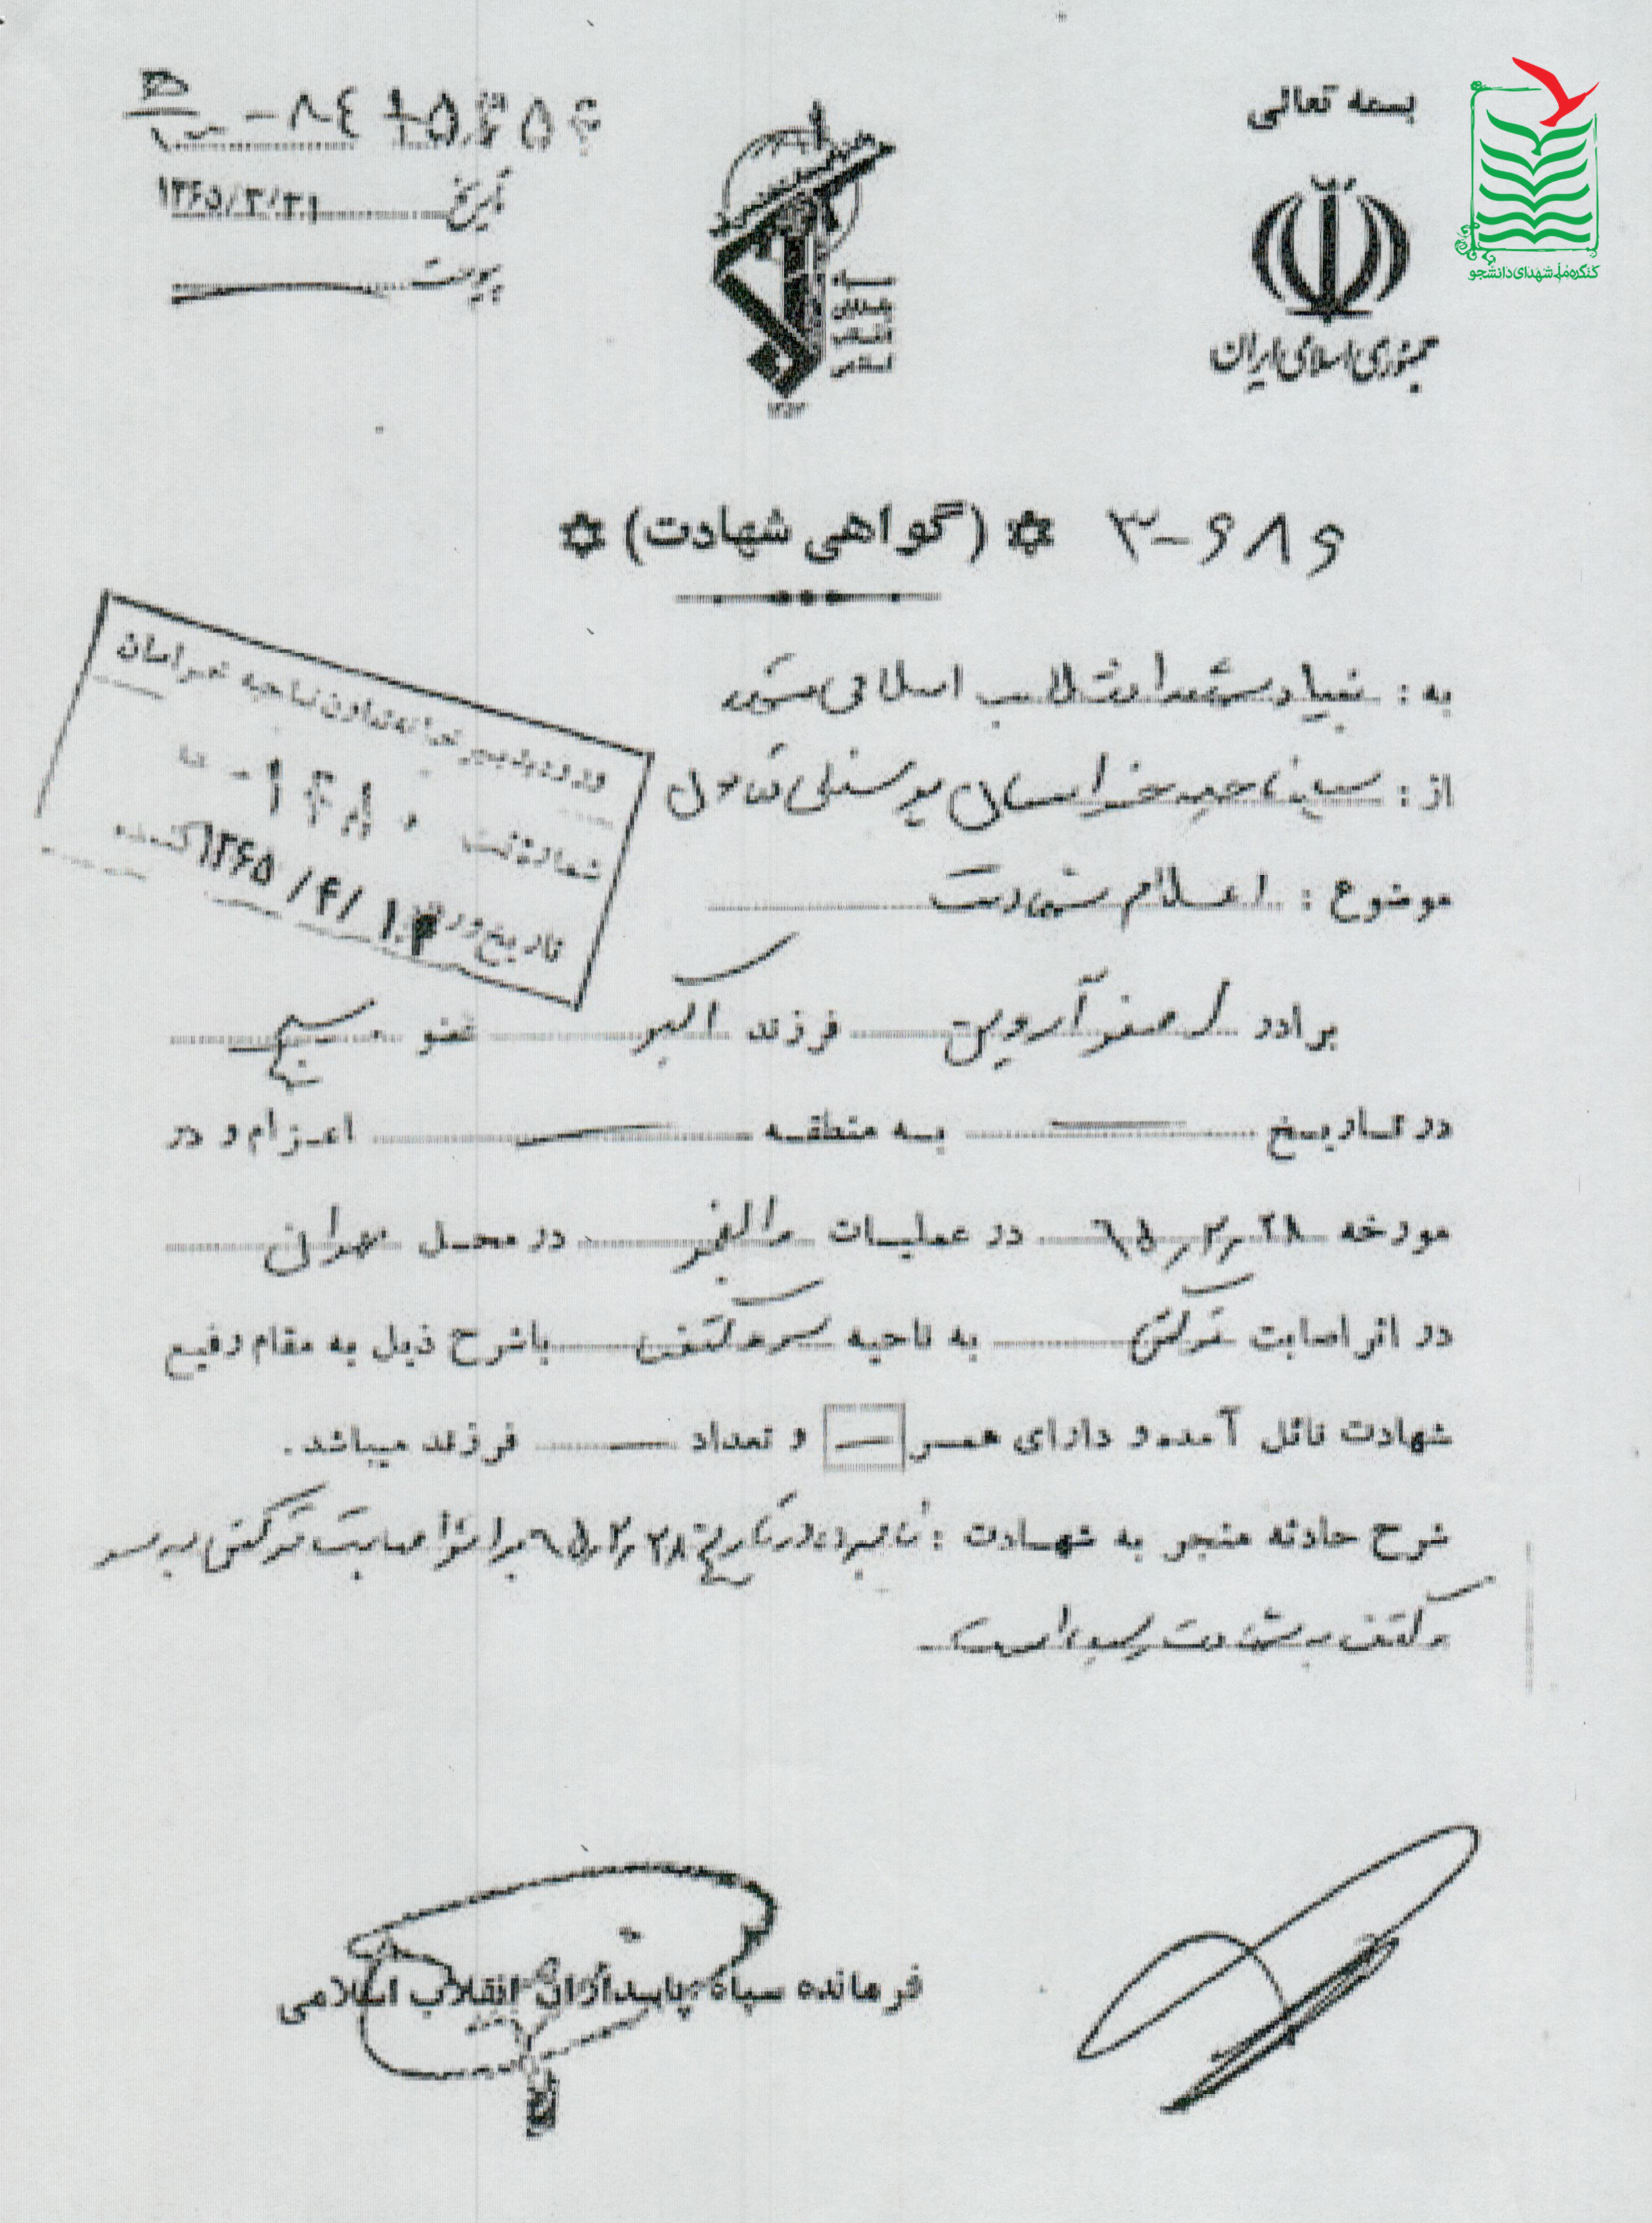 بسمه تعالی
جمهوری اسلامی ایران
کنگره ملی شهدای دانشجو
تاریخ ۱۳۶۵/۳/۳۱
پیوست
۳-۶۸۶
(گواهی شهادت)
به : بنیاد شهید انقلاب اسلامی مشهد
از : سپاه ناحیه خراسان پرسنلی تعاون
موضوع : اعلام شهادت
ورود به دبیرخانه تعاون ناحیه خراسان
شماره ثبت
تاریخ ورود ۱۳۶۵/۴/
برادر اصغر آروین فرزند اکبر عضو بسیج
در تاریخ به منطقه اعزام و در
مورخه ۶۵٫۲٫۲۸ در عملیات والفجر در محل مهران
در اثر اصابت ترکش به ناحیه سر و کتف باشرح ذیل به مقام رفیع
شهادت نائل آمده و دارای همسر و تعداد فرزند میباشد.
شرح حادثه منجر به شهادت : نامبرده در تاریخ ۶۵٫۲٫۲۸ بر اثر اصابت ترکش به سر
و کتف به شهادت رسیده است
فرمانده سپاه پاسداران انقلاب اسلامی